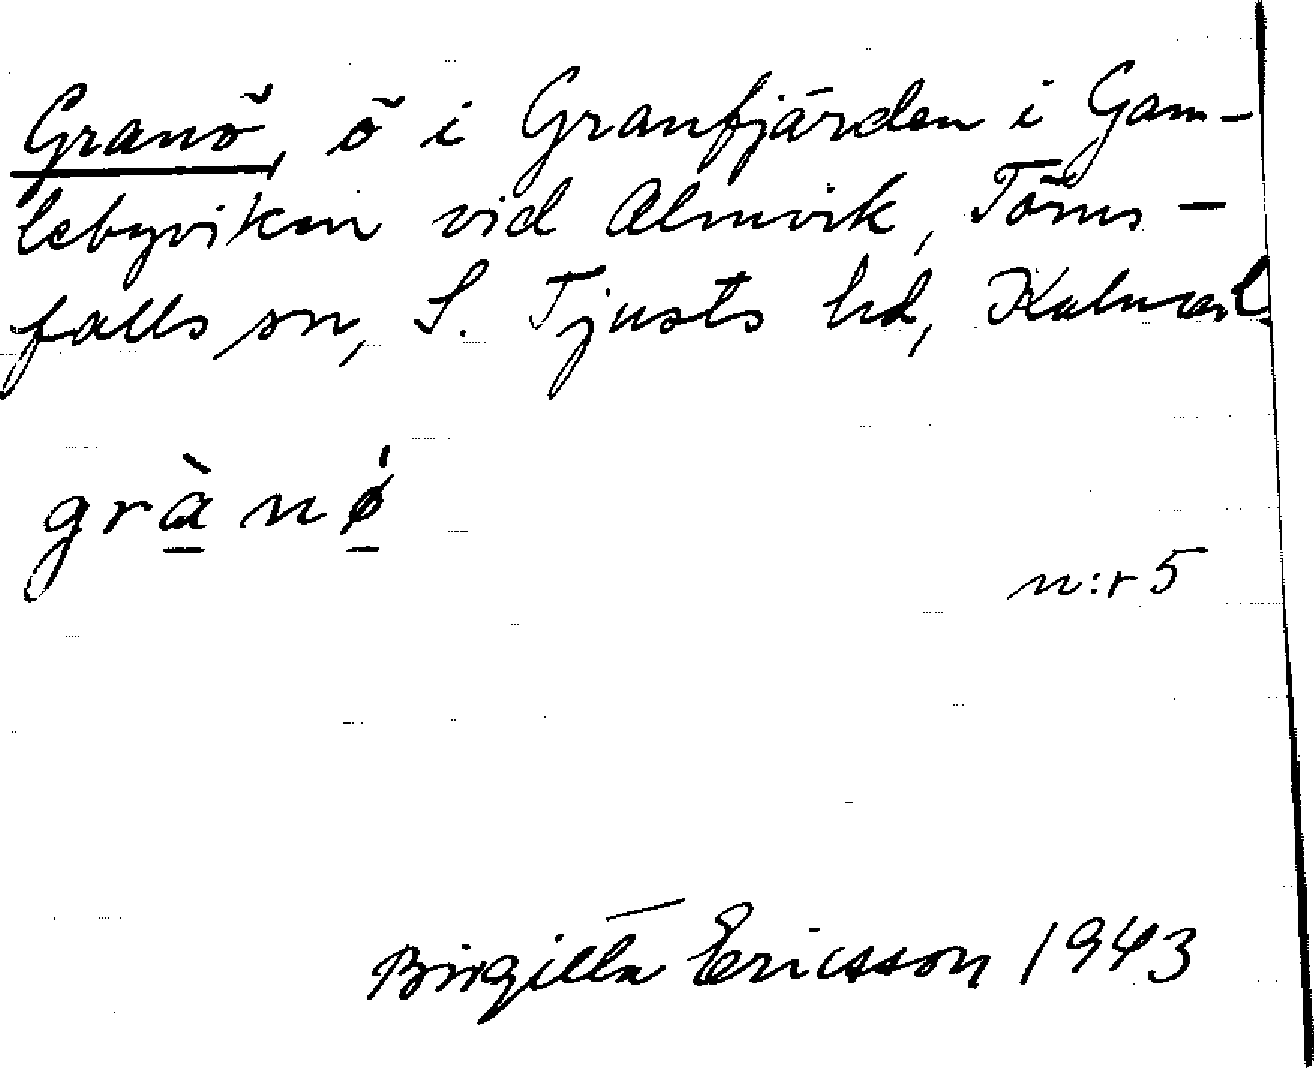 Granö, ö i Granfjärden i Gam-
lebyviken vid Almvik, Törns-
falls sn, S. Tjusts hd, Kalmar l.
grànǿ
n:r 5
Birgitta Ericsson 1943